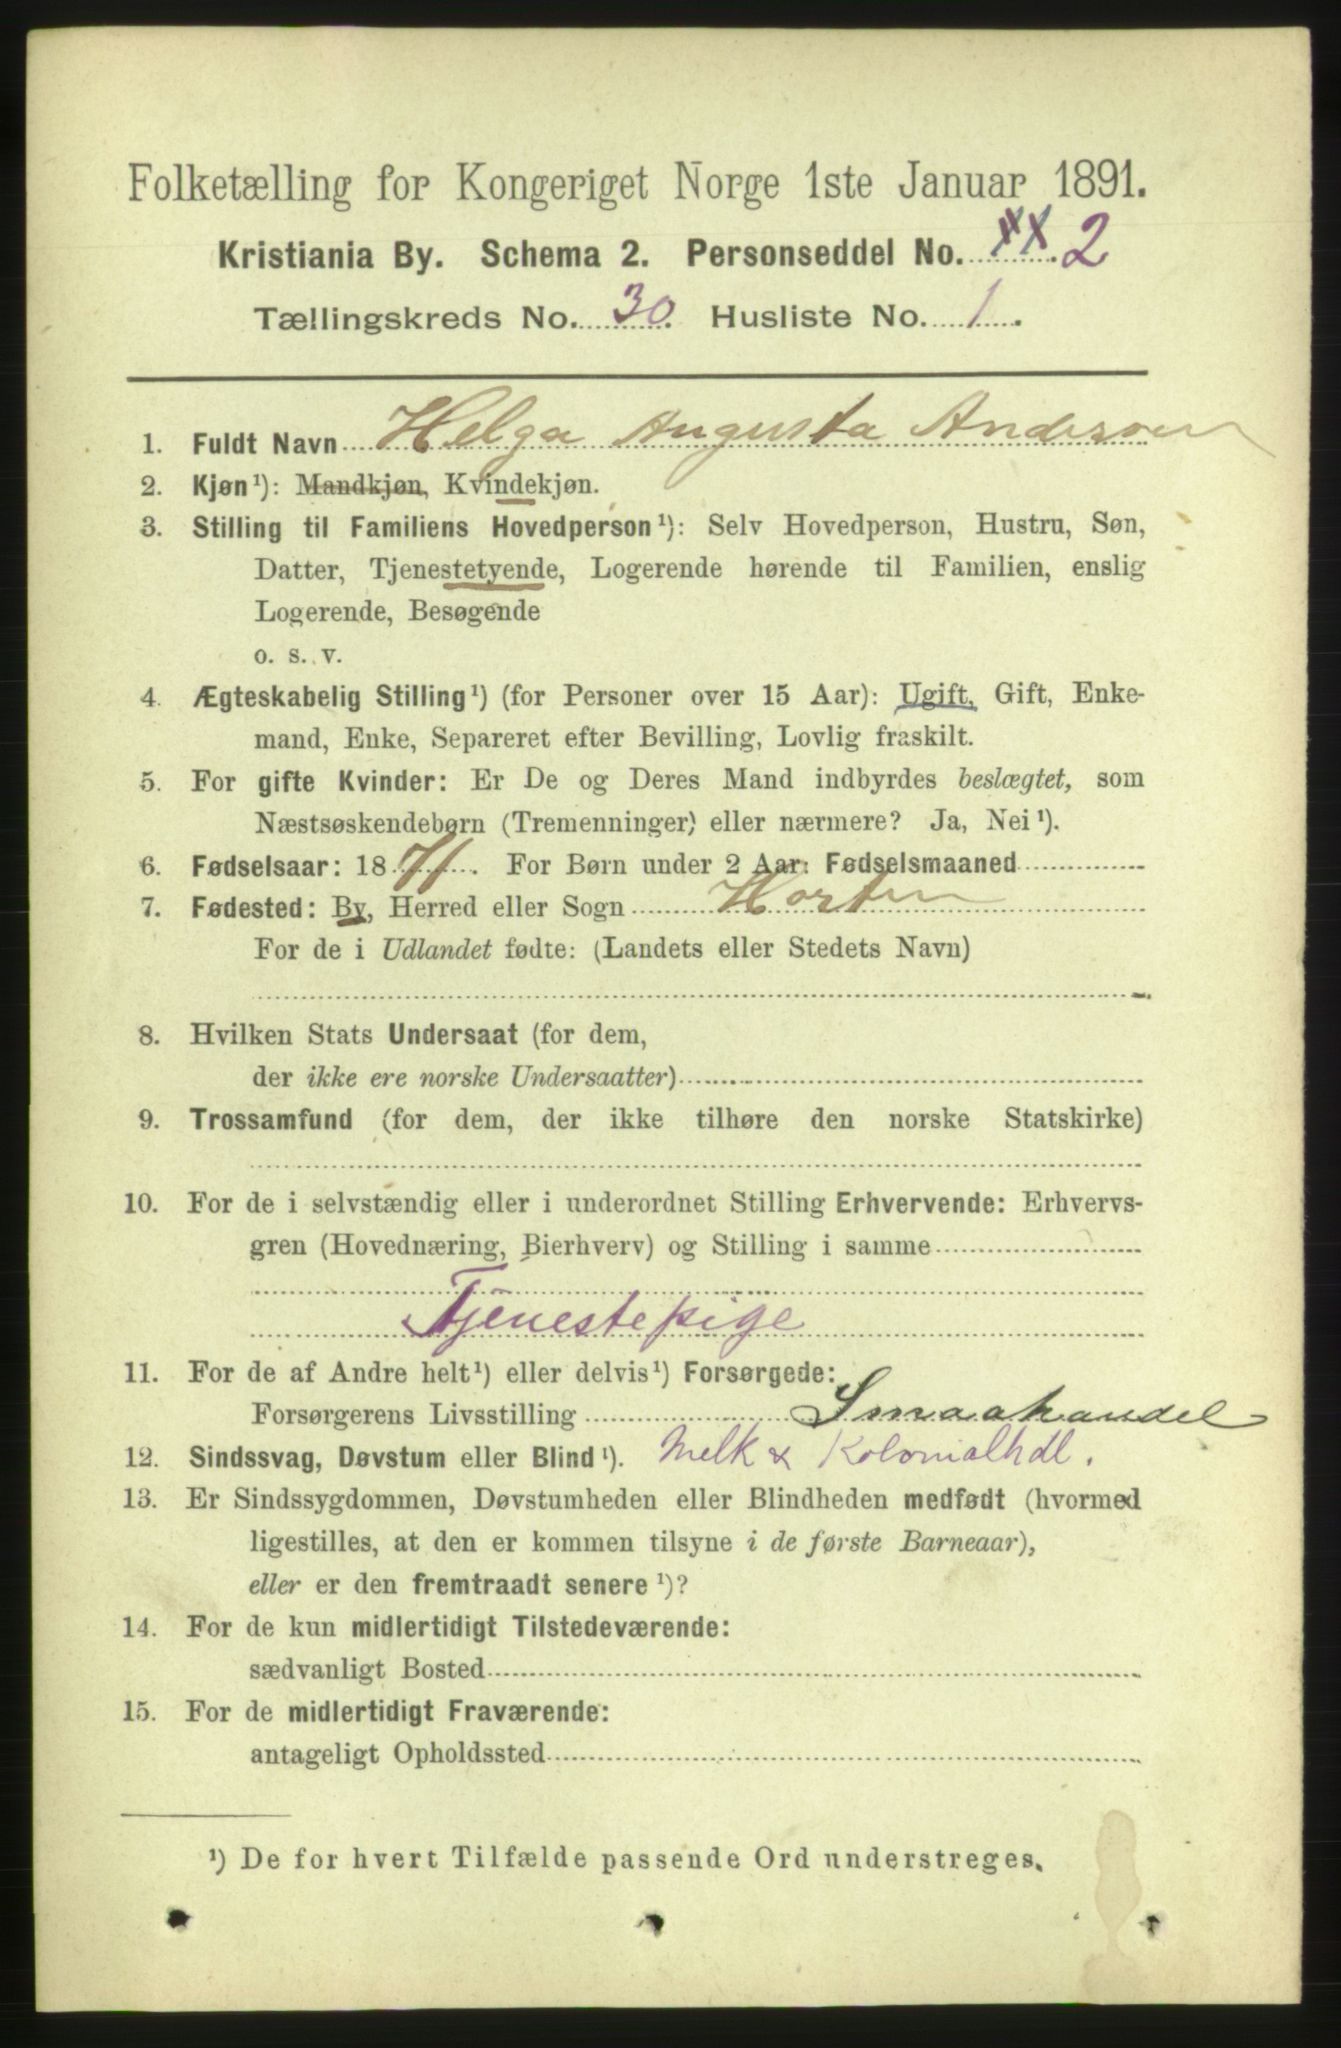 Folketælling for Kongeriget Norge 1ste Januar 1891.
Kristiania By. Schema 2. Personseddel No. xx 2
Tællingskreds No. 30. Husliste No. 1.
1. Fuldt Navn Helga Augusta Andersen
2. Kjøn¹): Mandkjøn, Kvindekjøn.
3. Stilling til Familiens Hovedperson¹): Selv Hovedperson, Hustru, Søn,
Datter, Tjenestetyende, Logerende hørende til Familien, enslig
Logerende, Besøgende
o. s. v.
4. Ægteskabelig Stilling¹) (for Personer over 15 Aar): Ugift, Gift, Enke-
mand, Enke, Separeret efter Bevilling, Lovlig fraskilt.
5. For gifte Kvinder: Er De og Deres Mand indbyrdes beslægtet, som
Næstsøskendebørn (Tremenninger) eller nærmere? Ja, Nei¹).
6. Fødselsaar: 1871. For Børn under 2 Aar: Fødselsmaaned
7. Fødested: By, Herred eller Sogn Horten
For de i Udlandet fødte: (Landets eller Stedets Navn)
8. Hvilken Stats Undersaat (for dem,
der ikke ere norske Undersaatter)
9. Trossamfund (for dem, der ikke tilhøre den norske Statskirke)
10. For de i selvstændig eller i underordnet Stilling Erhvervende: Erhvervs-
gren (Hovednæring, Bierhverv) og Stilling i samme
Tjenestepige
11. For de af Andre helt¹) eller delvis¹) Forsørgede:
Forsørgerens Livsstilling Smaahandel
12. Sindssvag, Døvstum eller Blind¹). Melk & Kolonialhdl.
13. Er Sindssygdommen, Døvstumheden eller Blindheden medfødt (hvormed
ligestilles, at den er kommen tilsyne i de første Barneaar),
eller er den fremtraadt senere¹)?
14. For de kun midlertidigt Tilstedeværende:
sædvanligt Bosted
15. For de midlertidigt Fraværende:
antageligt Opholdssted
¹) De for hvert Tilfælde passende Ord understreges.